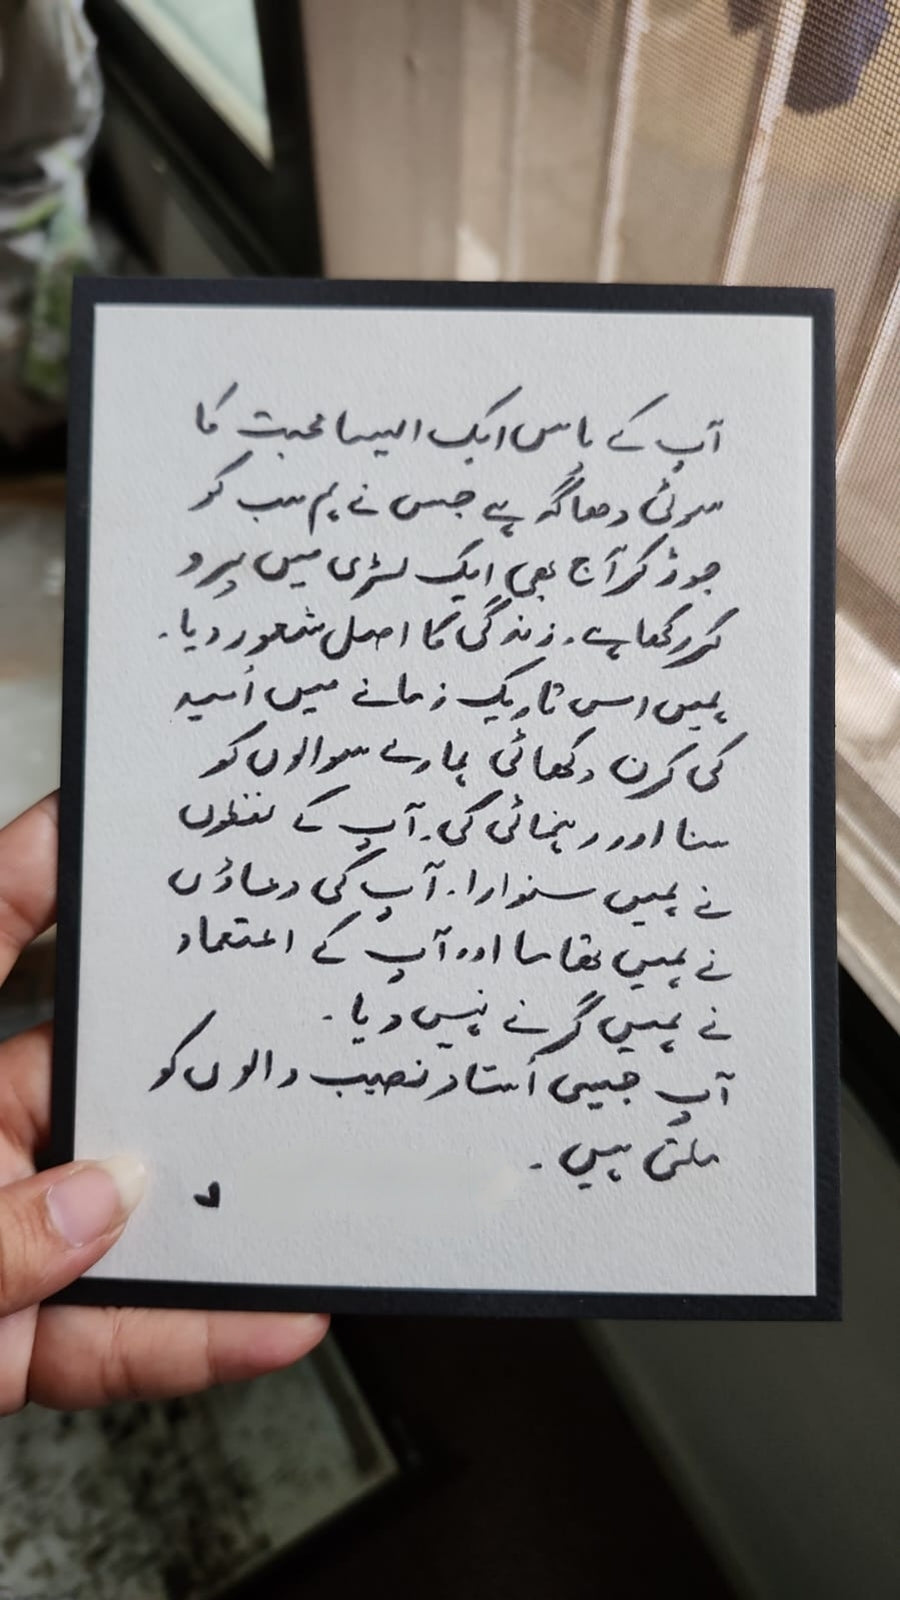 آپ کے پاس ایک ایسا محبت کا
سوئی دھاگہ ہے جس نے ہم سب کو
جوڑ کر آج بھی ایک لڑی میں پرو
کر رکھا ہے۔ زندگی کا اصل شعور دیا۔
ہمیں اس تاریک زمانے میں اُمید
کی کرن دکھائی ہمارے سوالوں کو
سنا اور رہنمائی کی۔ آپ کے لفظوں
نے ہمیں سنوارا۔ آپ کی دعاؤں
نے ہمیں تھاما اور آپ کے اعتماد
نے ہمیں گرنے نہیں دیا۔
آپ جیسی اُستاد نصیب والوں کو
ملتی ہیں۔